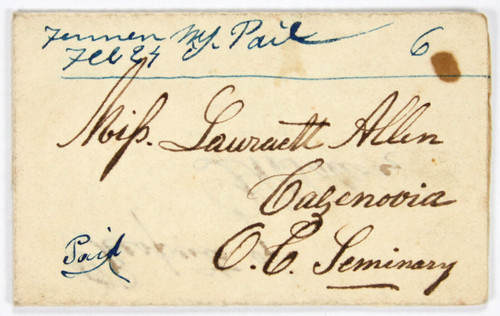 NY. Paid 6
Feb 24
Miss. Lauraett Allen
Cazenovia
Paid
O.C. Seminary